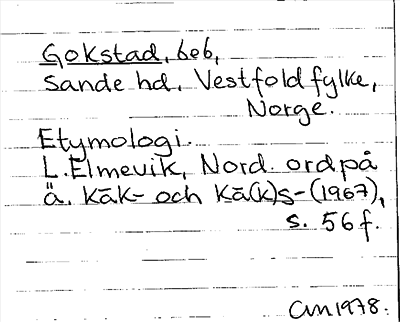 Gokstad, beb,
Sande hd. Vestfold fylke,
Norge.
Etymologi.
L. Elmevik, Nord. ord på
ä. kāk- och kā(k)s- (1967),
s. 56 f.
CM 1978.